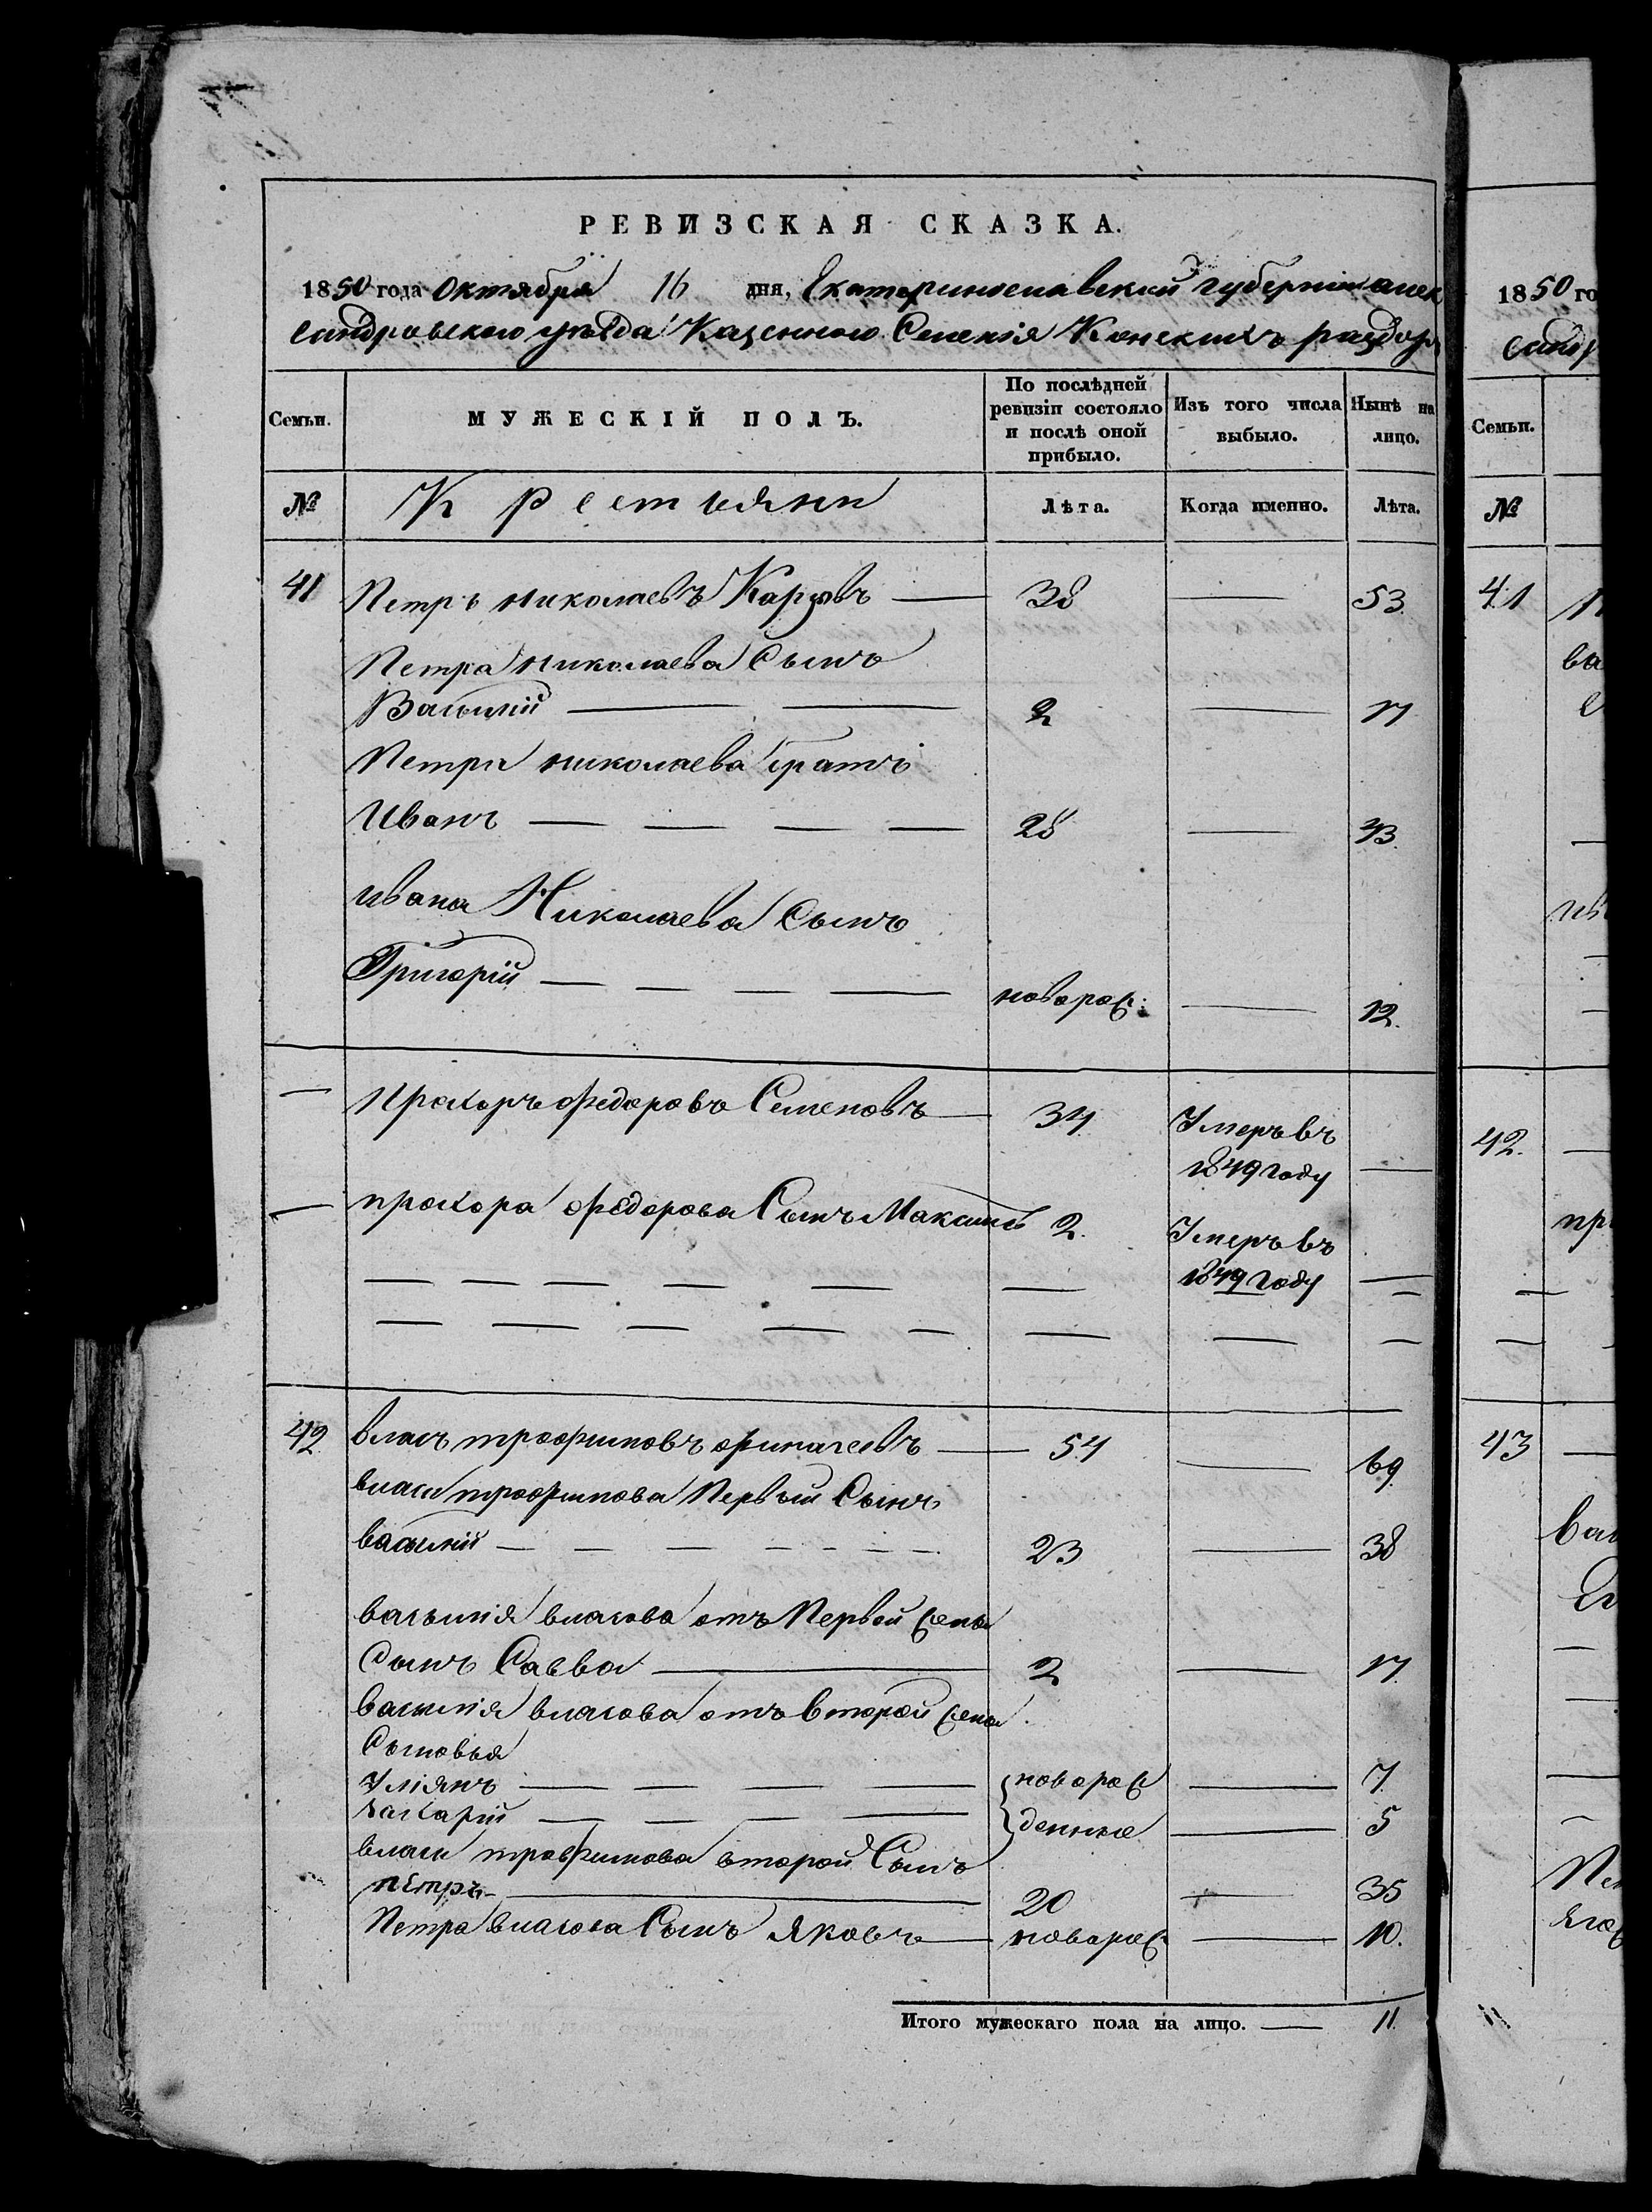 РЕВИЗСКАЯ СКАЗКА.
1850 года Октября 16 дня, Екатеринославской губернiи алек
сандровского уѣзда Казенного Селенiя Конскихъ раздоръ
Семьи. МУЖЕСКIЙ ПОЛЪ. По послѣдней ревизiи состояло и послѣ оной прибыло. Изъ того числа выбыло. Нынѣ на лицо.
№ Крестьяни Лѣта. Когда именно. Лѣта.
41 Петръ николаевъ Карповъ — 38 — 53.
Петра николаева Сынъ
Василiй — — 2 — 17
Петра николаева братъ
Иванъ — — — — 28 — 43.
ивана Николаева Сынъ
Григорiй — — — — новорож: — 12.
— Прохоръ федоровъ Семеновъ — 34. Умеръ въ
1849 году —
— прохора федорова Сынъ Максимъ 2. Умеръ въ
— — — — — — 1849 году —
— — — — — — — —
42 власъ трофимовъ — 54 — 69.
власа трофимова Первый Сынъ
василiй — — — — — — — 23 — 38
васылiя власова отъ Первой жены
Сынъ Савва — 2 — 17.
василiя власова отъ второй жены
Сыновья
Улiянъ — — — — новорож — 7.
захарiй — — — — денные — 5
власа трофимова второй Сынъ
пЕтръ — 20 — 35
Петра власова Сынъ Яковъ — новорож — 10.
Итого мужескаго пола на лицо. — 11.
1850 го
сандр
Семьи.
№
41
ва
42.
пр
43
ва
Пе